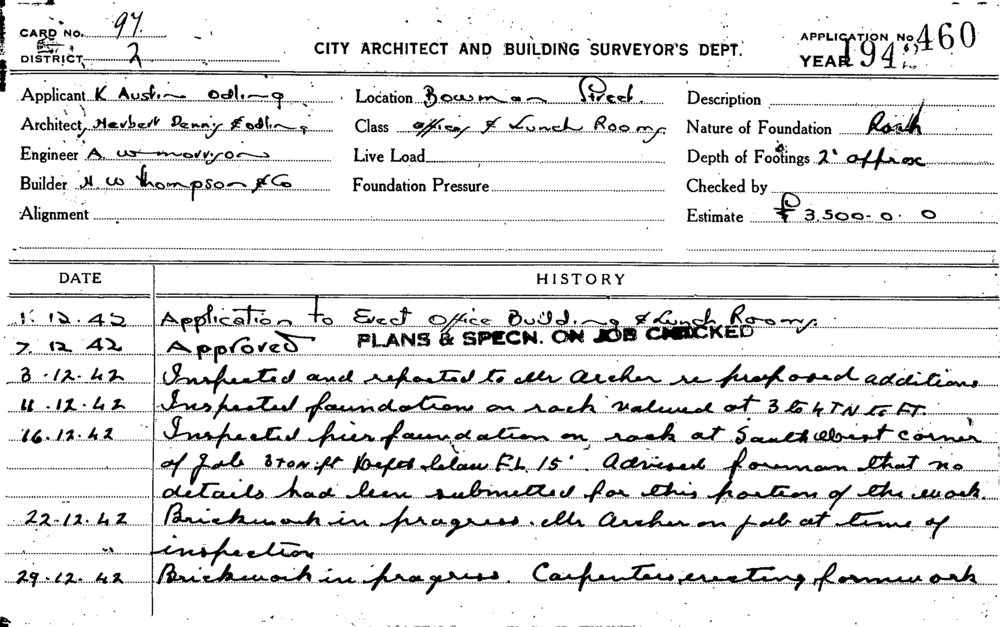 CARD No. 97.
DISTRICT 2
CITY ARCHITECT AND BUILDING SURVEYOR'S DEPT.
APPLICATION No. 460
YEAR 194
Applicant K Austin Odling
Location Bowman Street.
Description
Architect Herbert Denny & Odling
Class Offices & Lunch Rooms
Nature of Foundation Rock
Engineer A W Morrison
Live Load
Depth of Footings 2' approx
Builder H W Thompson & Co
Foundation Pressure
Checked by
Alignment
Estimate £ 3,500-0. 0
DATE HISTORY
1. 12. 42 Application to Erect Office Building & Lunch Rooms.
7. 12 42 Approved PLANS & SPECN. ON JOB CHECKED
3.12.42 Inspected and reported to Mr Archer re proposed additions
11.12.42 Inspected foundation on rock valued at 3 to 4 TN to FT.
16.12.42 Inspected pier foundation on rock at South West corner
of Job 3 ton ft Depth below F.L. 15'. Advised foreman that no
details had been submitted for this portion of the work.
22.12.42 Brickwork in progress. Mr Archer on job at time of
inspection
29.12.42 Brickwork in progress. Carpenters erecting formwork